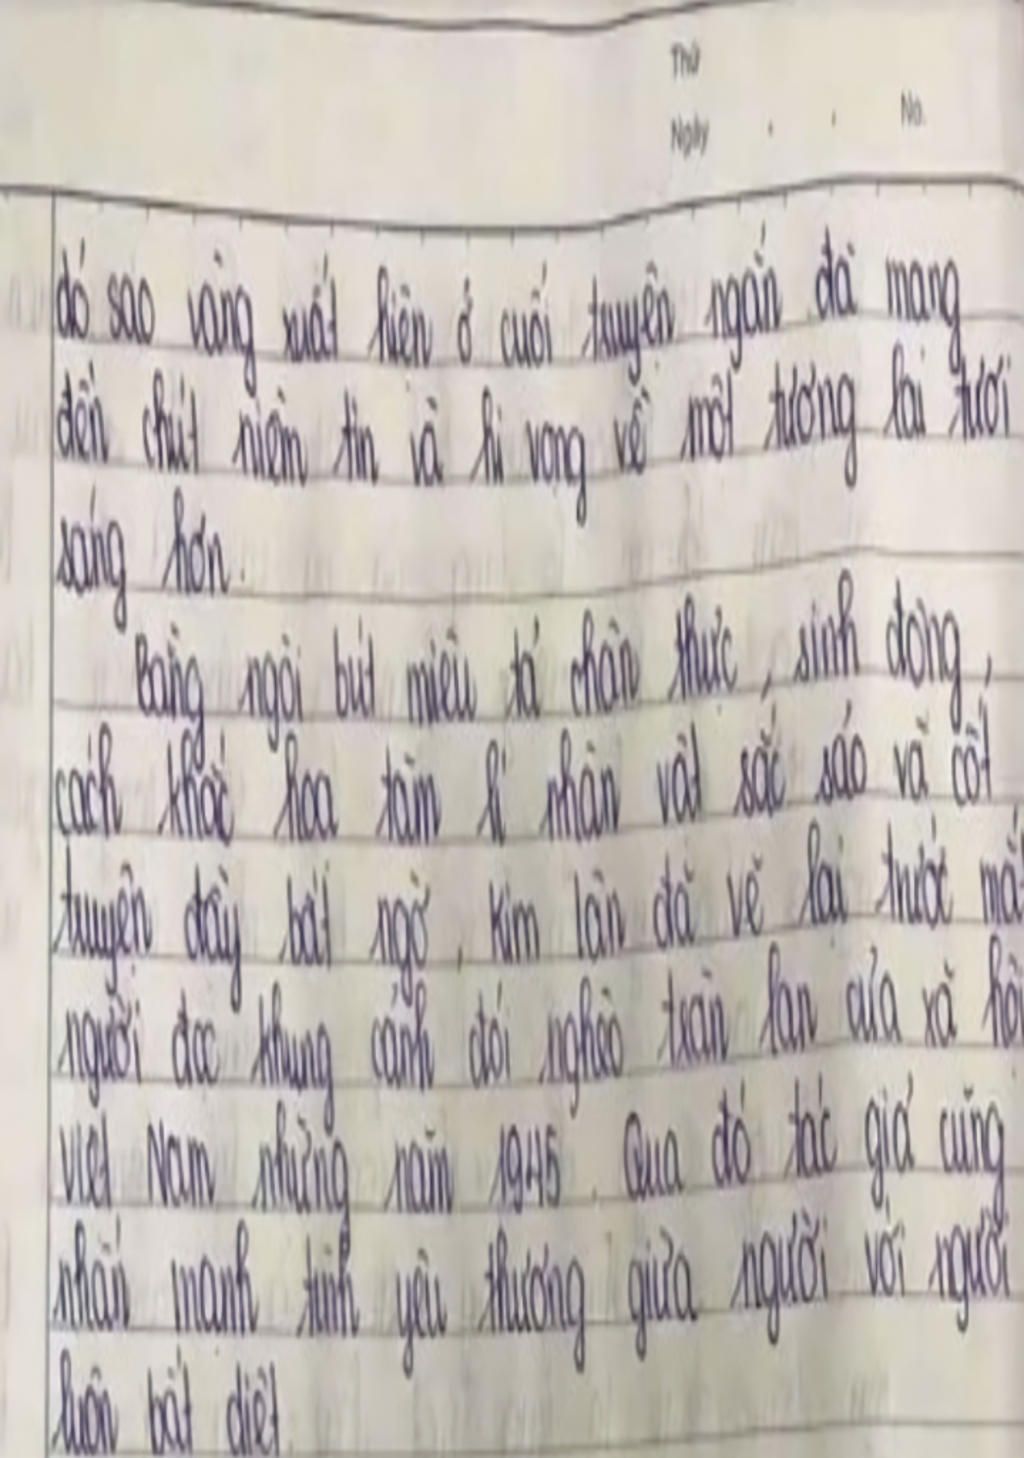 Thứ
Ngày . . No.
đỏ sao vàng xuất hiện ở cuối truyện ngắn đã mang
đến chút niềm tin và hi vọng về một tương lai tươi
sáng hơn.
Bằng ngòi bút miêu tả chân thực, sinh động,
cách khắc họa tâm lí nhân vật sắc sảo và cốt
truyện đầy bất ngờ, Kim Lân đã vẽ lại trước mắt
người đọc khung cảnh đói nghèo tràn lan của xã hội
Việt Nam những năm 1945. Qua đó tác giả cũng
nhấn mạnh tình yêu thương giữa người với người
luôn bất diệt